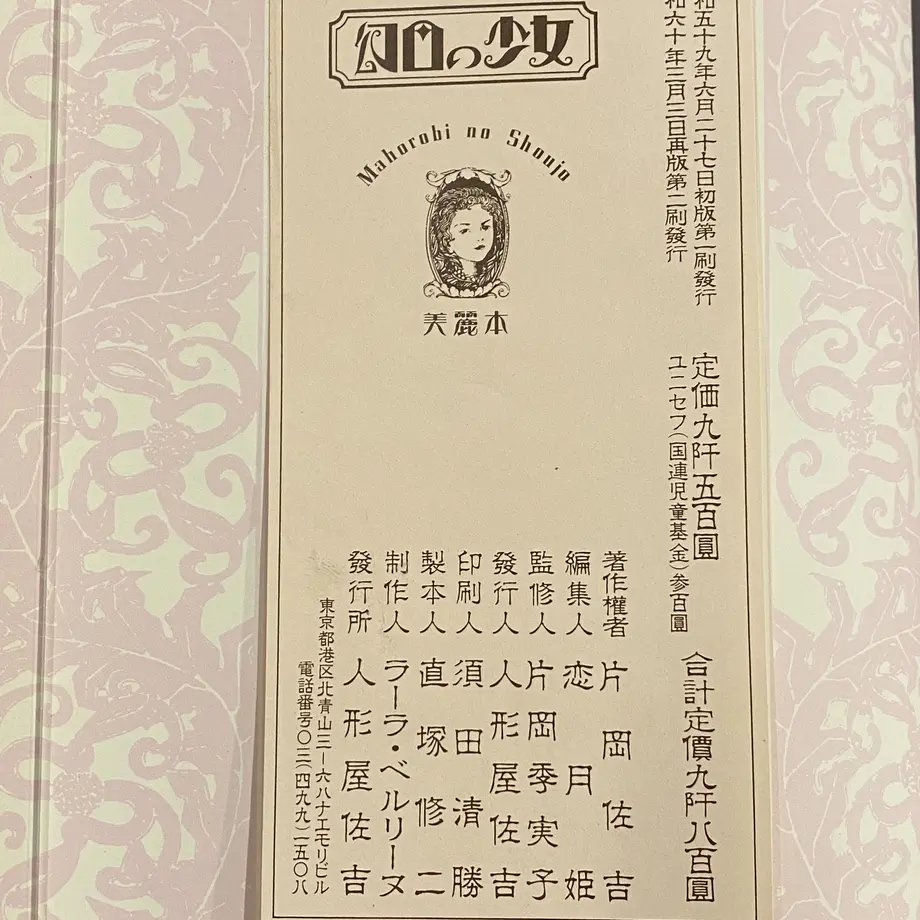 幻日の少女
Maborobi no Shoujo
美麗本
和五十九年六月二十七日初版第一刷發行
和六十年三月三日再版第二刷發行
定価九阡五百圓
ユニセフ(国連児童基金)参百圓
合計定價九阡八百圓
著作權者 片岡佐吉
編集人 恋月姫
監修人 片岡季実子
發行人 人形屋佐吉
印刷人 須田清勝
製本人 直塚修二
制作人 ラーラ・ベルリーヌ
發行所 人形屋佐吉
東京都港区北青山三ー六ハナエモリビル
電話番号〇三(四九九)一五〇八